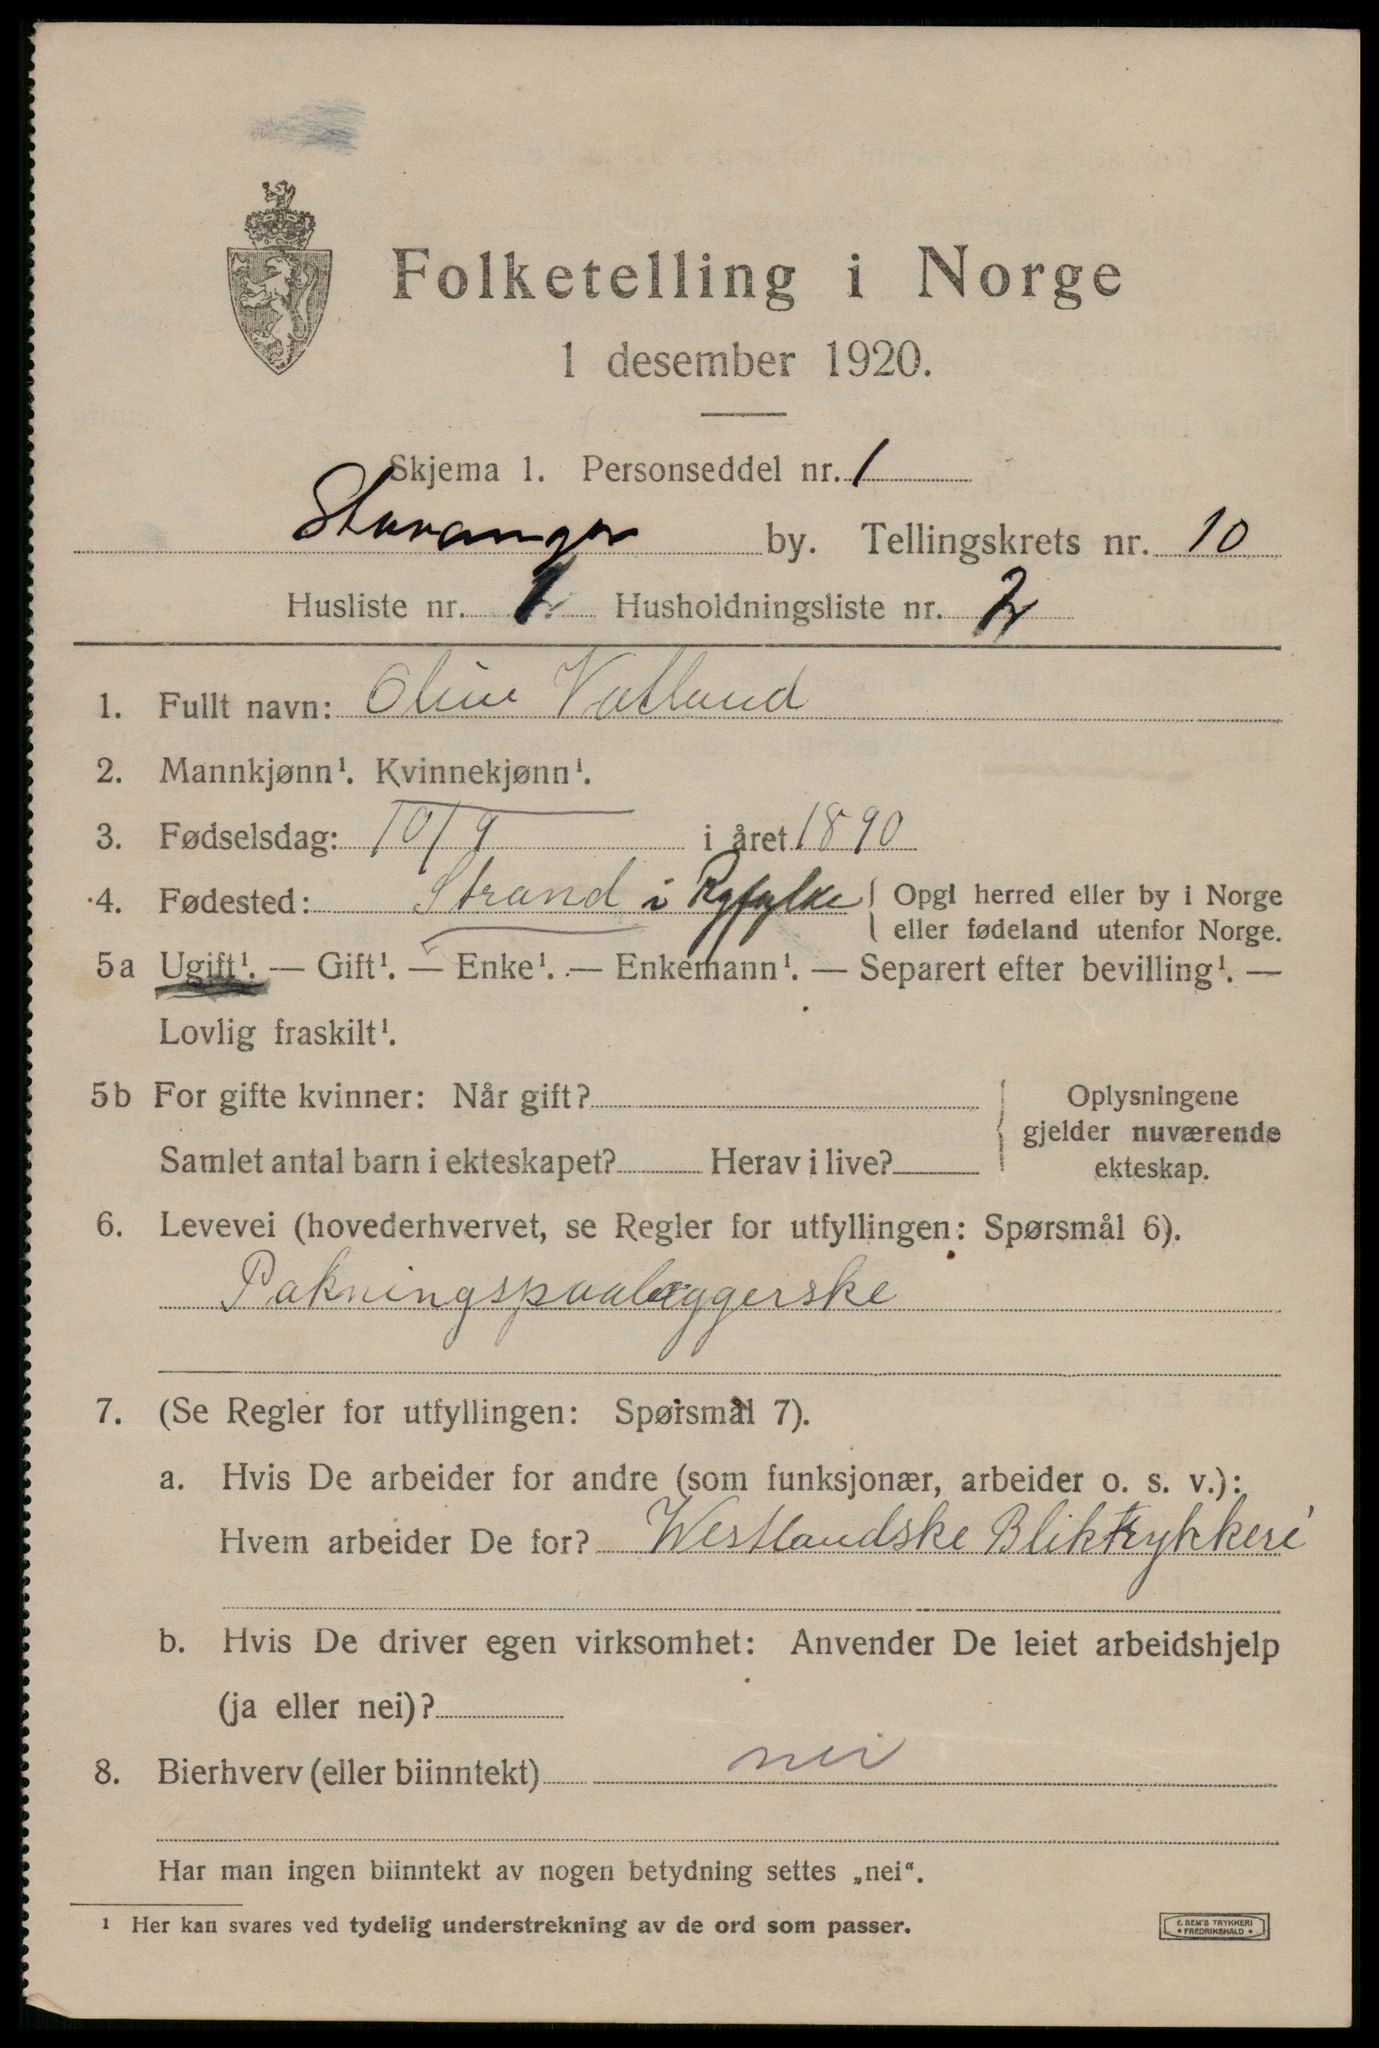 Folketelling i Norge
1 desember 1920.
Skjema 1. Personseddel nr. 1
Stavanger by. Tellingskrets nr. 10
Husliste nr. Husholdningsliste nr. 2
1. Fullt navn: Oline Vatland
2. Mannkjønn¹. Kvinnekjønn¹.
3. Fødselsdag: 10/9 i året 1890
4. Fødested: Strand i Ryfylke { Opgi herred eller by i Norge
eller fødeland utenfor Norge.
5a Ugift¹. — Gift¹. — Enke¹. — Enkemann¹. — Separert efter bevilling¹. —
Lovlig fraskilt¹.
5b For gifte kvinner: Når gift? Oplysningene
gjelder nuværende
Samlet antal barn i ekteskapet? Herav i live? ekteskap.
6. Levevei (hovederhvervet, se Regler for utfyllingen: Spørsmål 6).
Pakningspaalæggerske
7. (Se Regler for utfyllingen: Spørsmål 7).
a. Hvis De arbeider for andre (som funksjonær, arbeider o. s. v.):
Hvem arbeider De for? Westlandske Bliktrykkeri
b. Hvis De driver egen virksomhet: Anvender De leiet arbeidshjelp
(ja eller nei)?
8. Bierhverv (eller biinntekt) nei
Har man ingen biinntekt av nogen betydning settes „nei“.
¹ Her kan svares ved tydelig understrekning av de ord som passer.
E. SEM'S TRYKKERI
FREDRIKSHALD